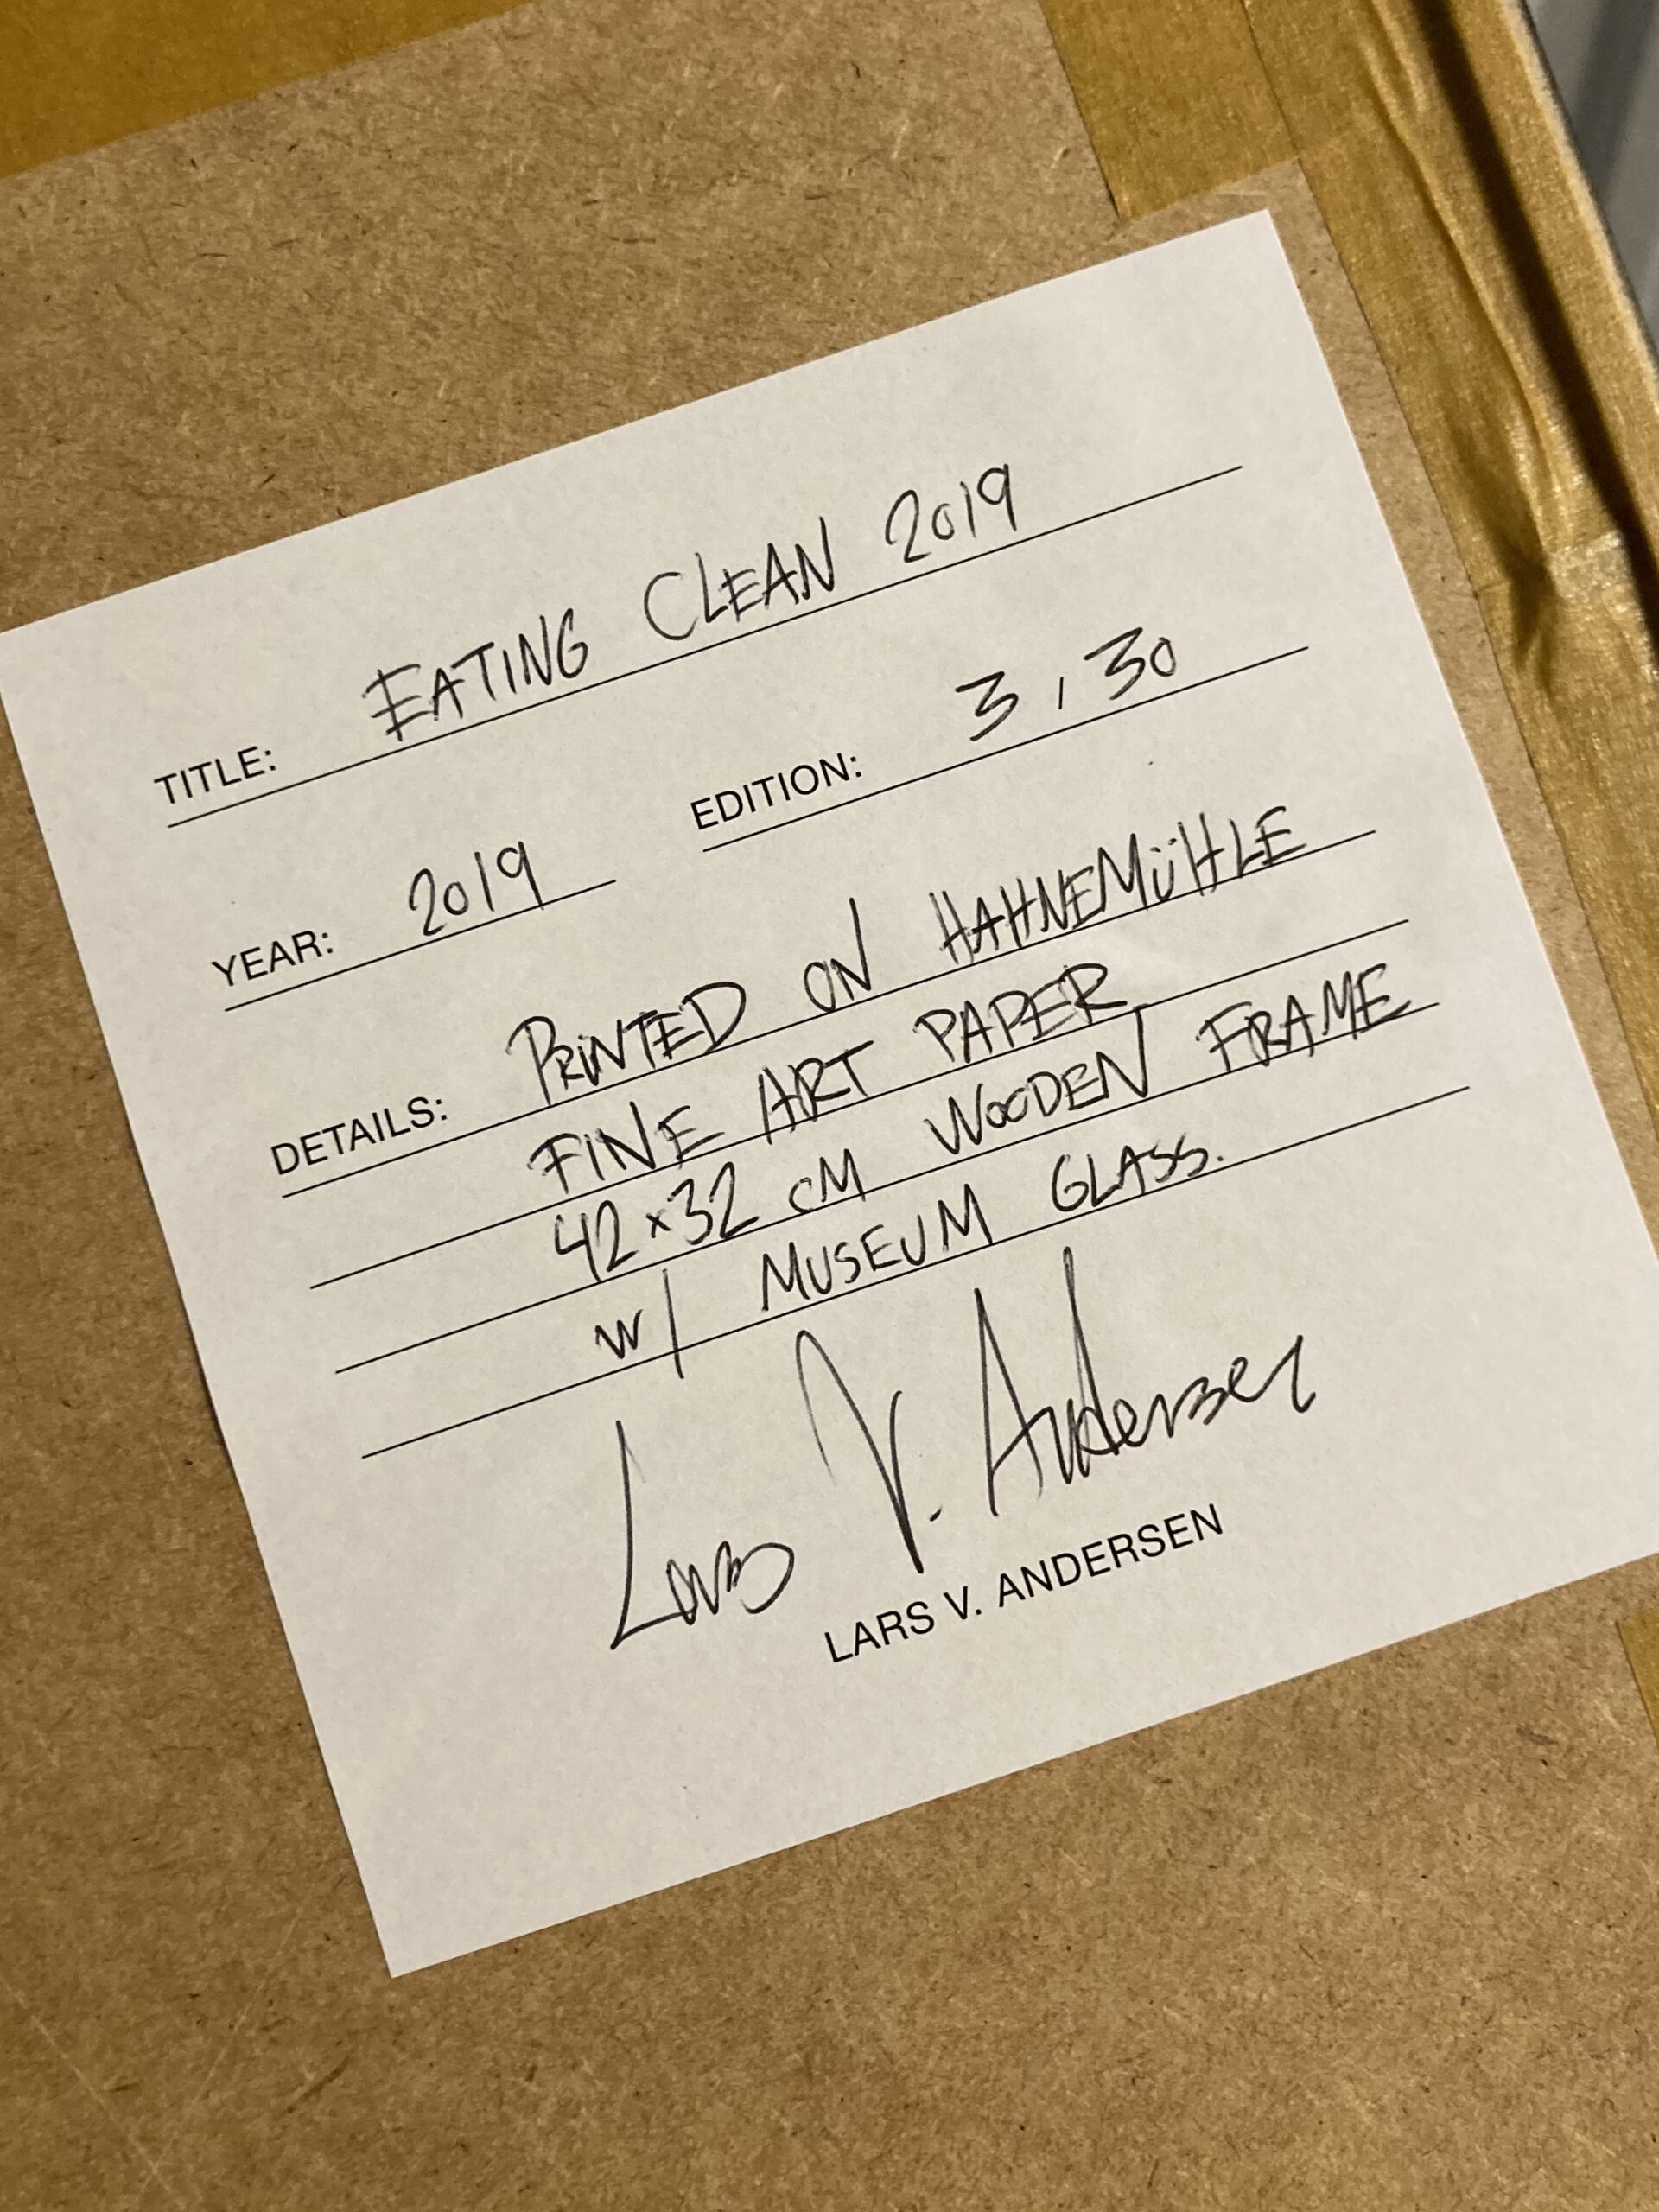 TITLE: EATING CLEAN 2019
YEAR: 2019 EDITION: 3, 30
DETAILS: PRINTED ON HAHNEMÜHLE
FINE ART PAPER
42x32 CM WOODEN FRAME
W/ MUSEUM GLASS.
Lars V. Andersen
LARS V. ANDERSEN